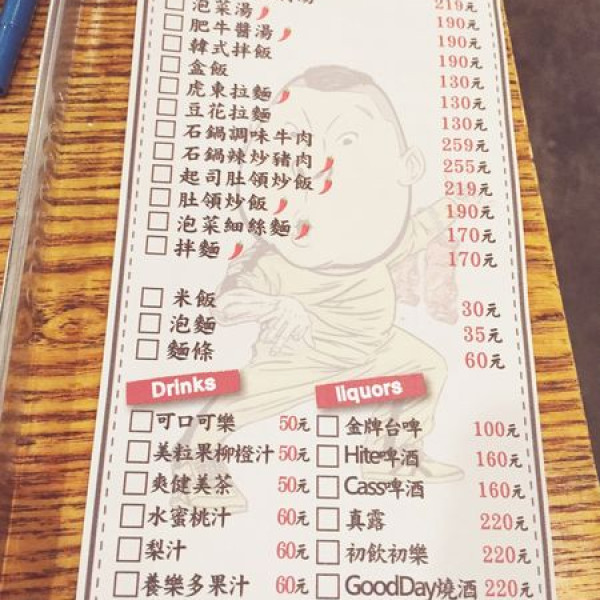 219元
泡菜湯 190元
肥牛醬湯 190元
韓式拌飯 190元
盒飯 130元
虎東拉麵 130元
豆花拉麵 130元
石鍋調味牛肉 259元
石鍋辣炒豬肉 255元
起司肚領炒飯 219元
肚領炒飯 190元
泡菜細絲麵 170元
拌麵 170元
米飯 30元
泡麵 35元
麵條 60元
Drinks
可口可樂 50元
美粒果柳橙汁 50元
爽健美茶 50元
水蜜桃汁 60元
梨汁 60元
養樂多果汁 60元
liquors
金牌台啤 100元
Hite啤酒 160元
Cass啤酒 160元
真露 220元
初飲初樂 220元
GoodDay燒酒 220元